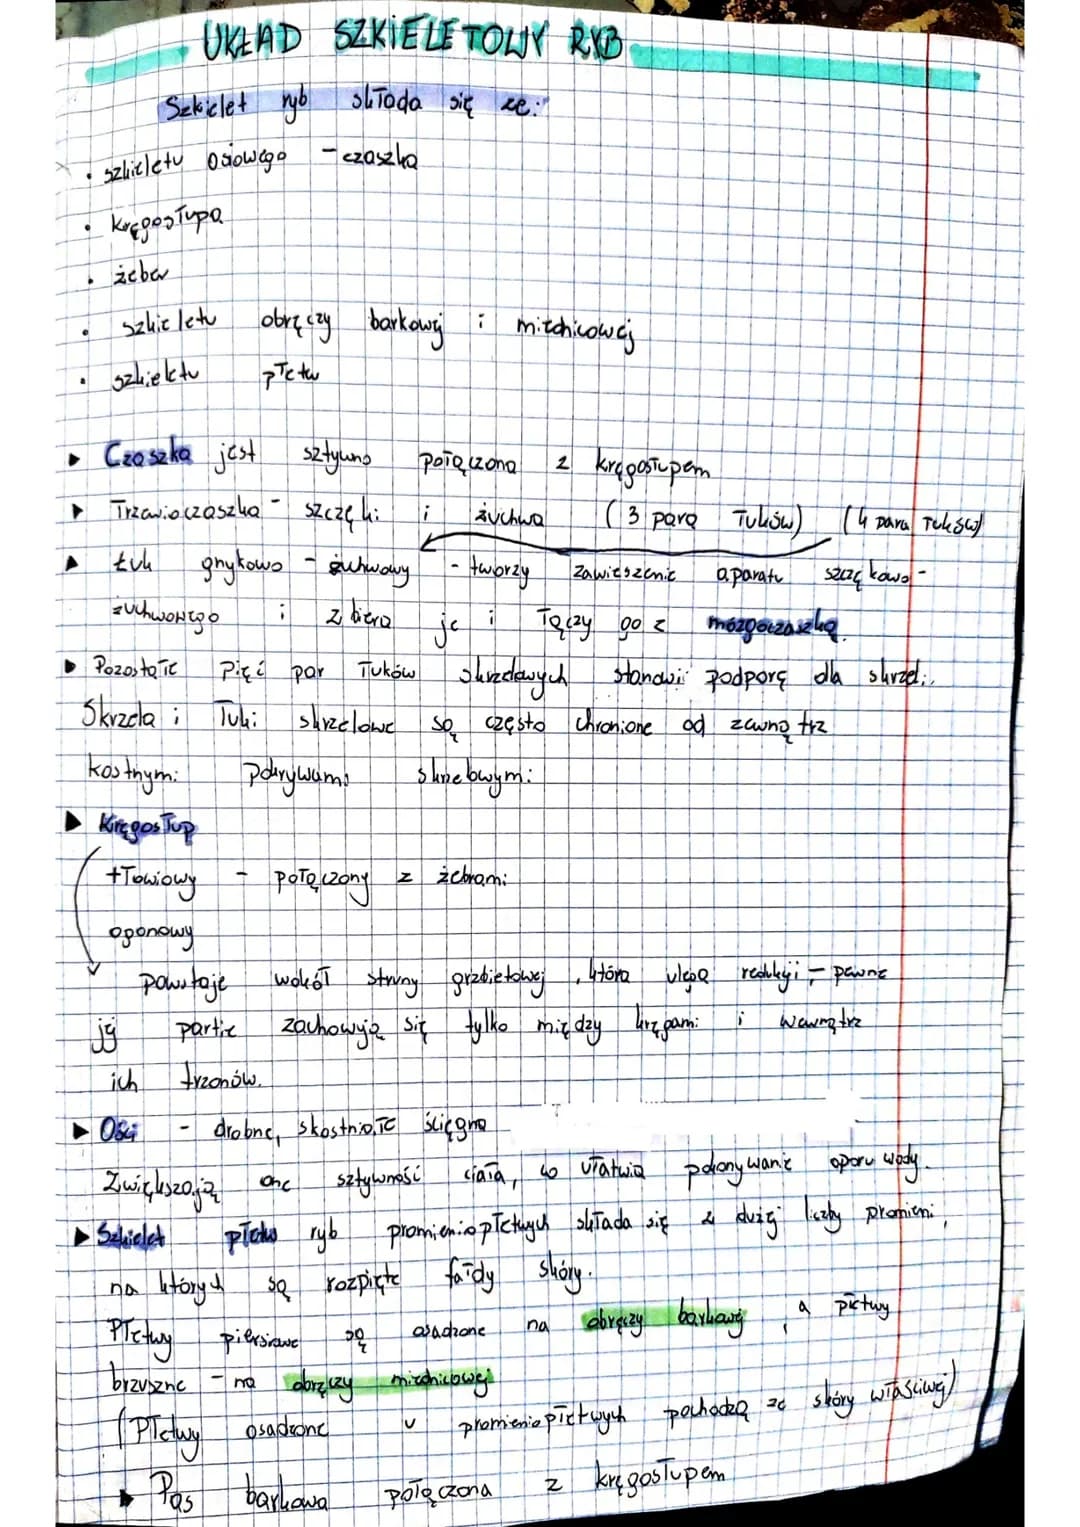 UKŁAD SZKIELETOWY RYB
Szkielet ryb składa się ze:
• szkieletu osiowego - czaszka
• kręgosłupa
• żeber
• szkieletu obręczy barkowej i miednicowej
• szkieletu płetw
▸ Czaszka jest sztywno połączona z kręgosłupem
▸ Trzewioczaszka - szczęki i żuchwa (3 para łuków) (4 para łuków)
▸ Łuk gnykowo - żuchwowy - tworzy zawieszenie aparatu szczękowo-
żuchwowego i zbiera je i łączy go z mózgoczaszką.
▸ Pozostałe pięć par łuków skrzelowych stanowi podporę dla skrzeli.
Skrzela i łuki skrzelowe są często chronione od zewnątrz
kostnymi pokrywami skrzelowymi
▸ Kręgosłup
tłowiowy - połączony z żebrami
ogonowy
powstaje wokół struny grzbietowej, która ulega redukcji - pewne
jej partie zachowują się tylko między kręgami i wewnątrz
ich trzonów.
▸ Ości - drobne, skostniałe ścięgna
Zwiększają one sztywność ciała, co ułatwia pokonywanie oporu wody.
▸ Szkielet płetw ryb promieniopłetwych składa się z dużej liczby promieni,
na których są rozpięte fałdy skóry.
Płetwy piersiowe są osadzone na obręczy barkowej, a płetwy
brzuszne - na obręczy miednicowej
(Płetwy osadzone u promieniopłetwych pochodzą ze skóry właściwej)
▸ Pas barkowa połączona z kręgosłupem